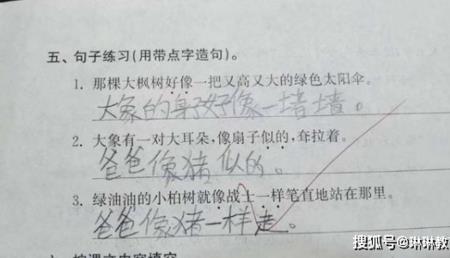 五、句子练习(用带点字造句)。
1. 那棵大枫树好像一把又高又大的绿色太阳伞。
大象的身好像一墙墙。
2. 大象有一对大耳朵,像扇子似的,耷拉着。
爸爸像猪似的。
3. 绿油油的小柏树就像战士一样笔直地站在那里。
爸爸像猪一样走。
搜狐号@琳琳教